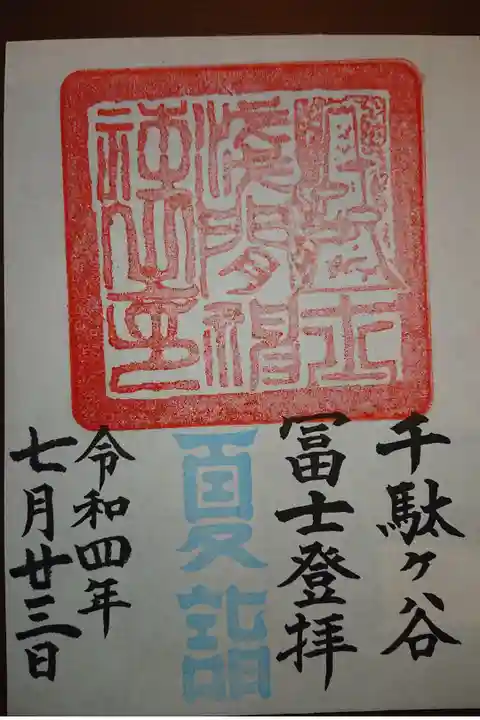 淺間神
千駄ヶ谷
冨士登拝
夏詣
令和四年
七月廿三日